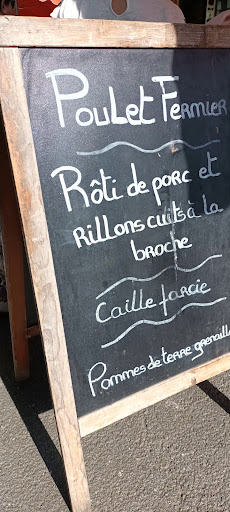 Poulet Fermier
Rôti de porc et
Rillons cuits à la
broche
Caille farcie
Pommes de terre grenaill